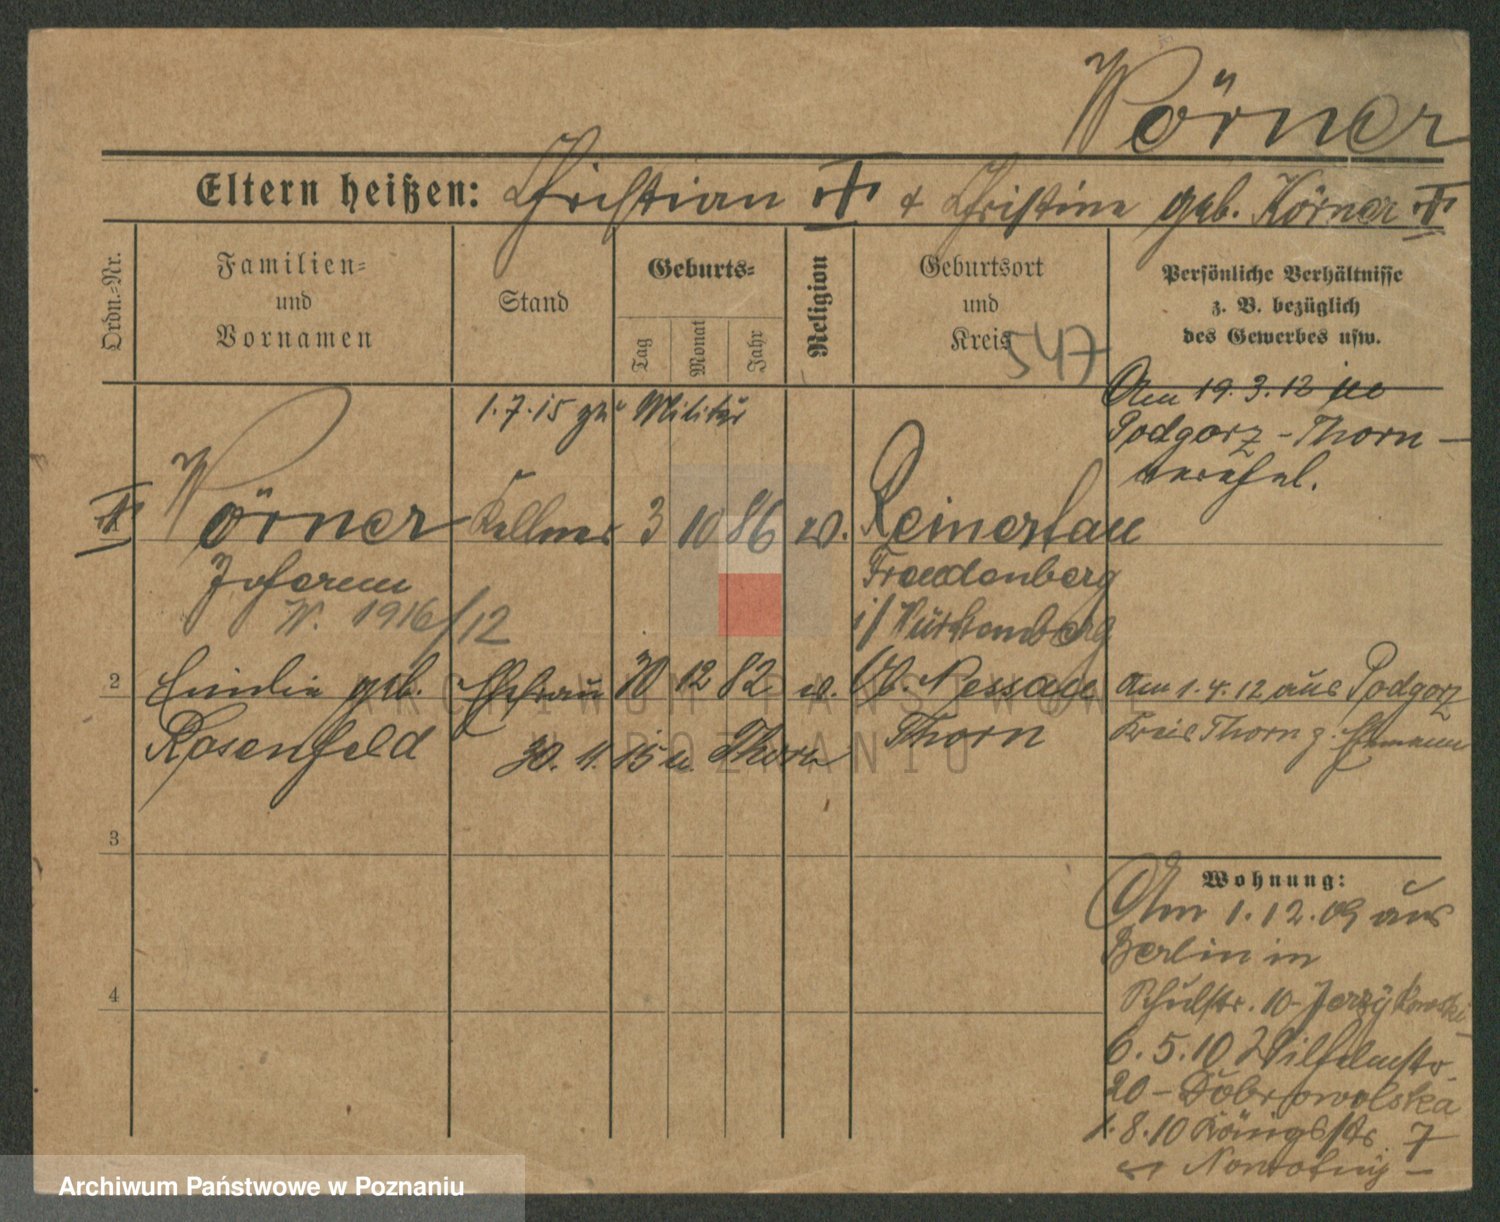 Wörner
Eltern heißen: Christian & Christine geb. Körner
Ordn.-Nr.
Familien-
und
Vornamen
Stand
Geburts-
Tag
Monat
Jahr
Religion
Geburtsort
und
Kreis
547
Persönliche Verhältnisse
z. B. bezüglich
des Gewerbes usw.
1.7.15 zu Militär
Am 19.3.12
Podgorz - Thorn -
Wörner Kellner 3 10 86 ev. Reinerlau
Johann
W. 1916/12
Freudenberg
i/ Württemberg
2 Emilie geb. Ehefrau 30 12 82 ev. Nessau
Rosenfeld
30. 11. 15 n. Thorn
Thorn
Am 1.4.12 aus Podgorz
Kreis Thorn z. Ehemann
3
4
Wohnung:
Am 1.12.09 aus
Berlin in
Schulstr. 10 - Jerzykowski
6.5.10 Wilhelmstr.
20 - Dobrowolska
1.8.10 Königstr. 7
Nowotny -
ARCHIWUM PAŃSTWOWE
W POZNANIU
Archiwum Państwowe w Poznaniu